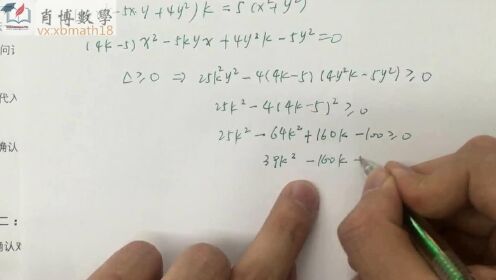 肖博數學
vx:xbmath18
-5x·y+4y²)k=5(x²+y²)
问计
(4k-5)x²-5kyx+4y²k-5y²=0
代入
Δ≥0 ⇒ 25k²y²-4(4k-5)(4y²k-5y²)≥0
25k²-4(4k-5)²≥0
确认
25k²-64k²+160k-100≥0
39k²-160k+
二：
确认对